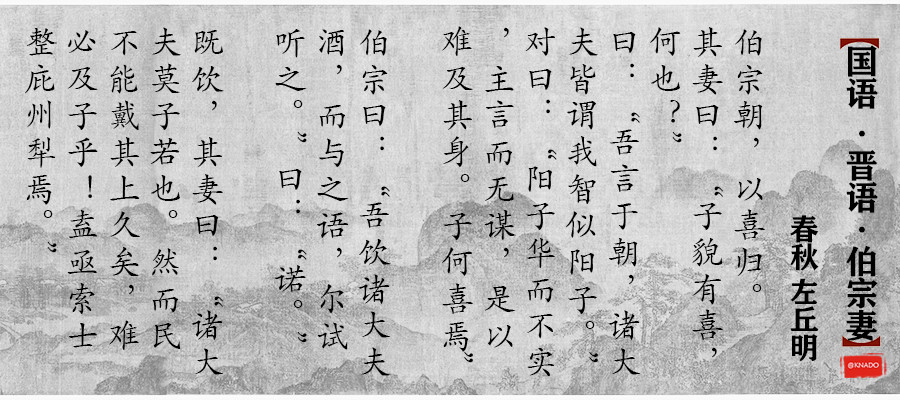 【国语 · 晋语 · 伯宗妻】
@KNADO
春秋 左丘明
伯宗朝，以喜归。
其妻曰：“子貌有喜，
何也？”
曰：“吾言于朝，诸大
夫皆谓我智似阳子。”
对曰：“阳子华而不实
，主言而无谋，是以
难及其身。子何喜焉”
伯宗曰：“吾饮诸大夫
酒，而与之语，尔试
听之。”曰：“诺。”
既饮，其妻曰：“诸大
夫莫子若也。然而民
不能戴其上久矣，难
必及子乎！盍亟索士
整庇州犁焉。”